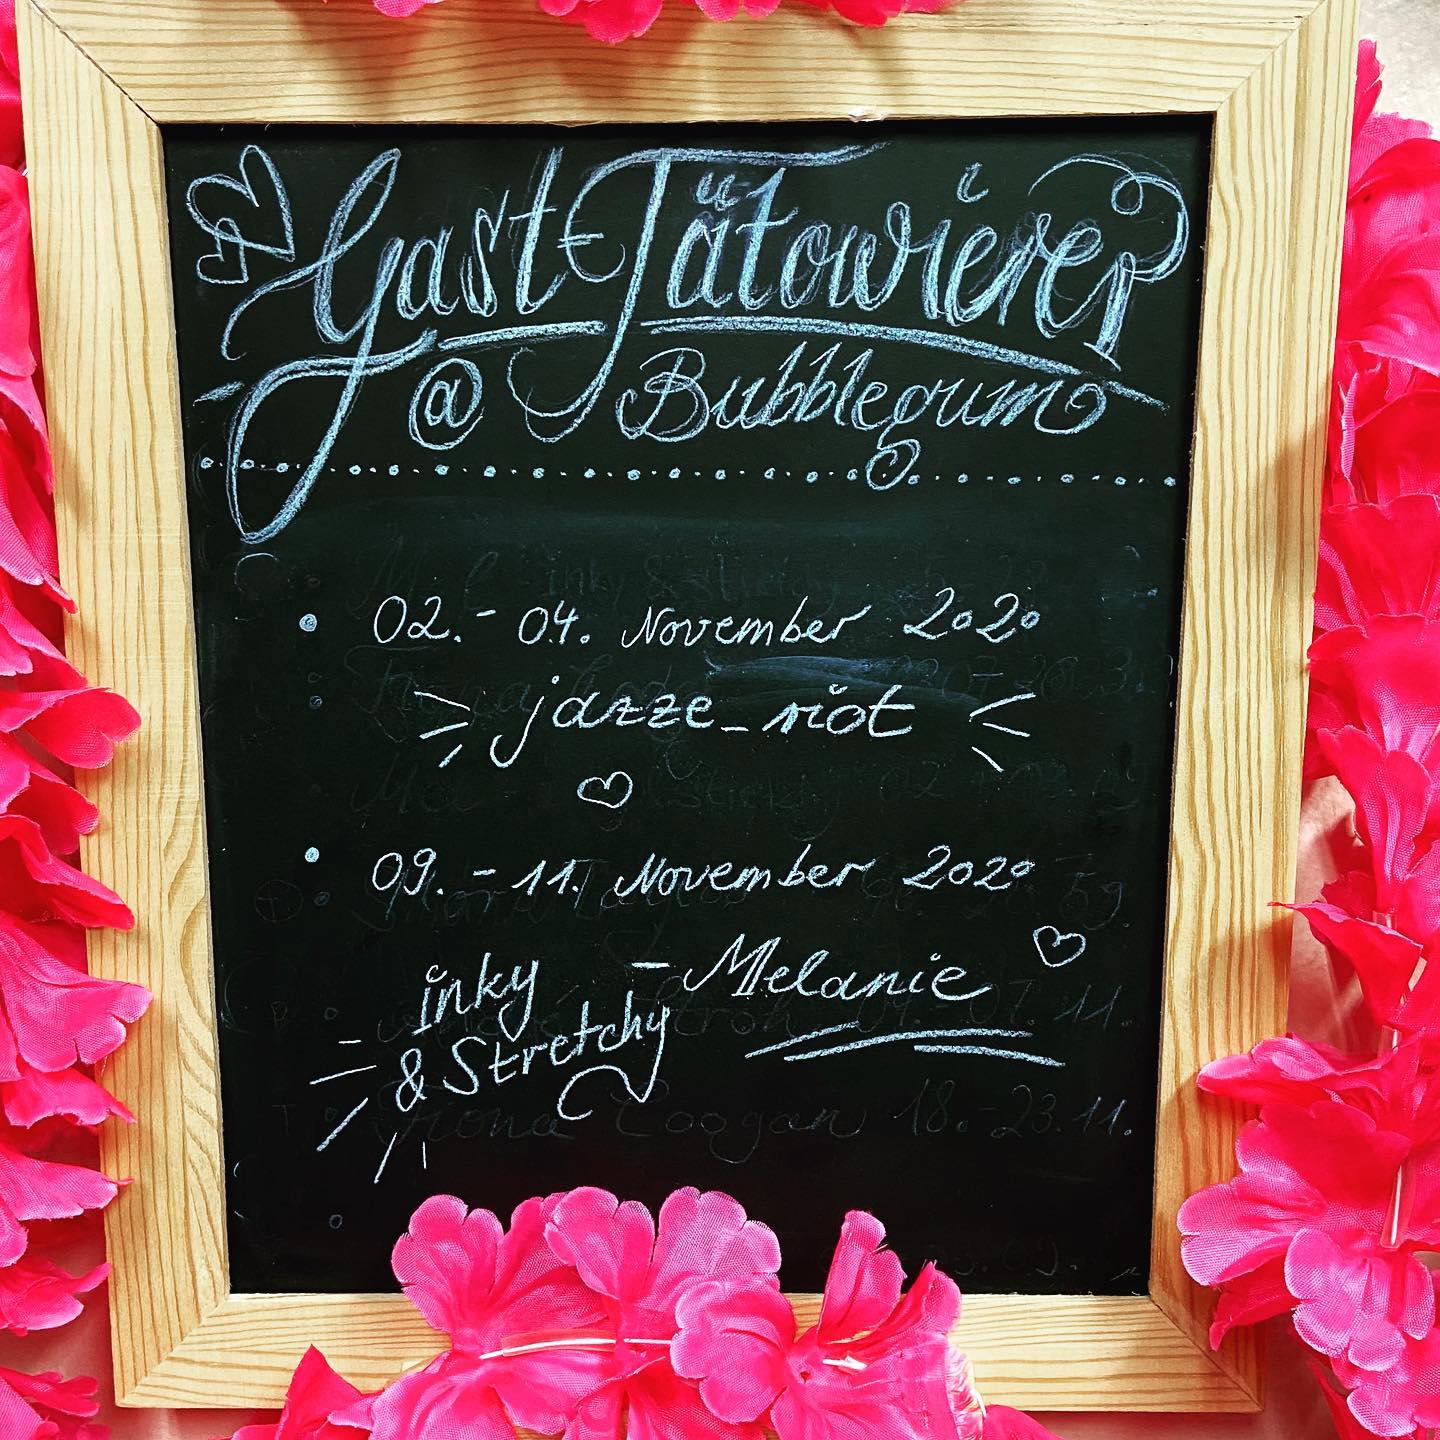 Gast Tätowierer
@ Bubblegum
02. - 04. November 2020
jazze_riot
09. - 11. November 2020
inky
& Stretchy
- Melanie
Fiona Coogan 18. - 23. 11.